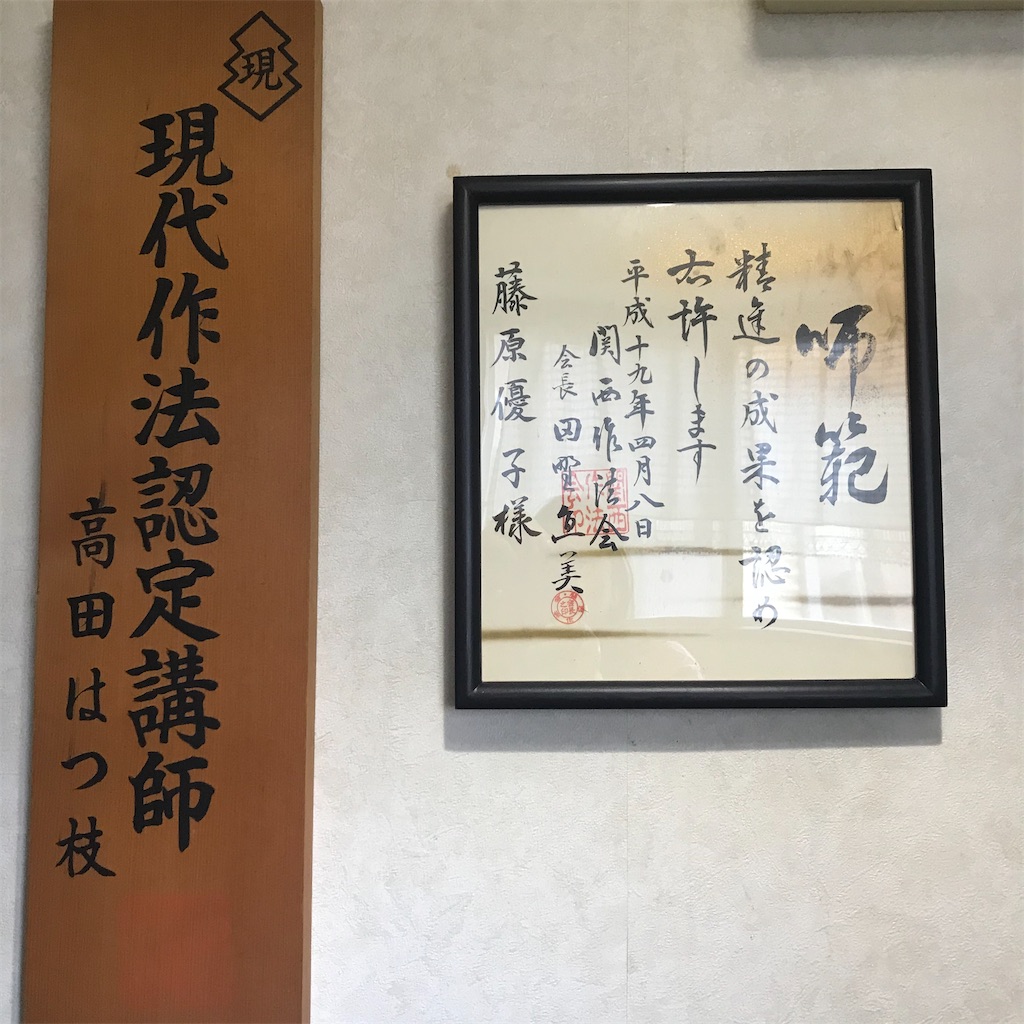 現
現代作法認定講師
高田はつ枝
師範
精進の成果を認め
右許します
平成十九年四月八日
関西作法会
会長 田野直美
藤原優子様
関西作法会印